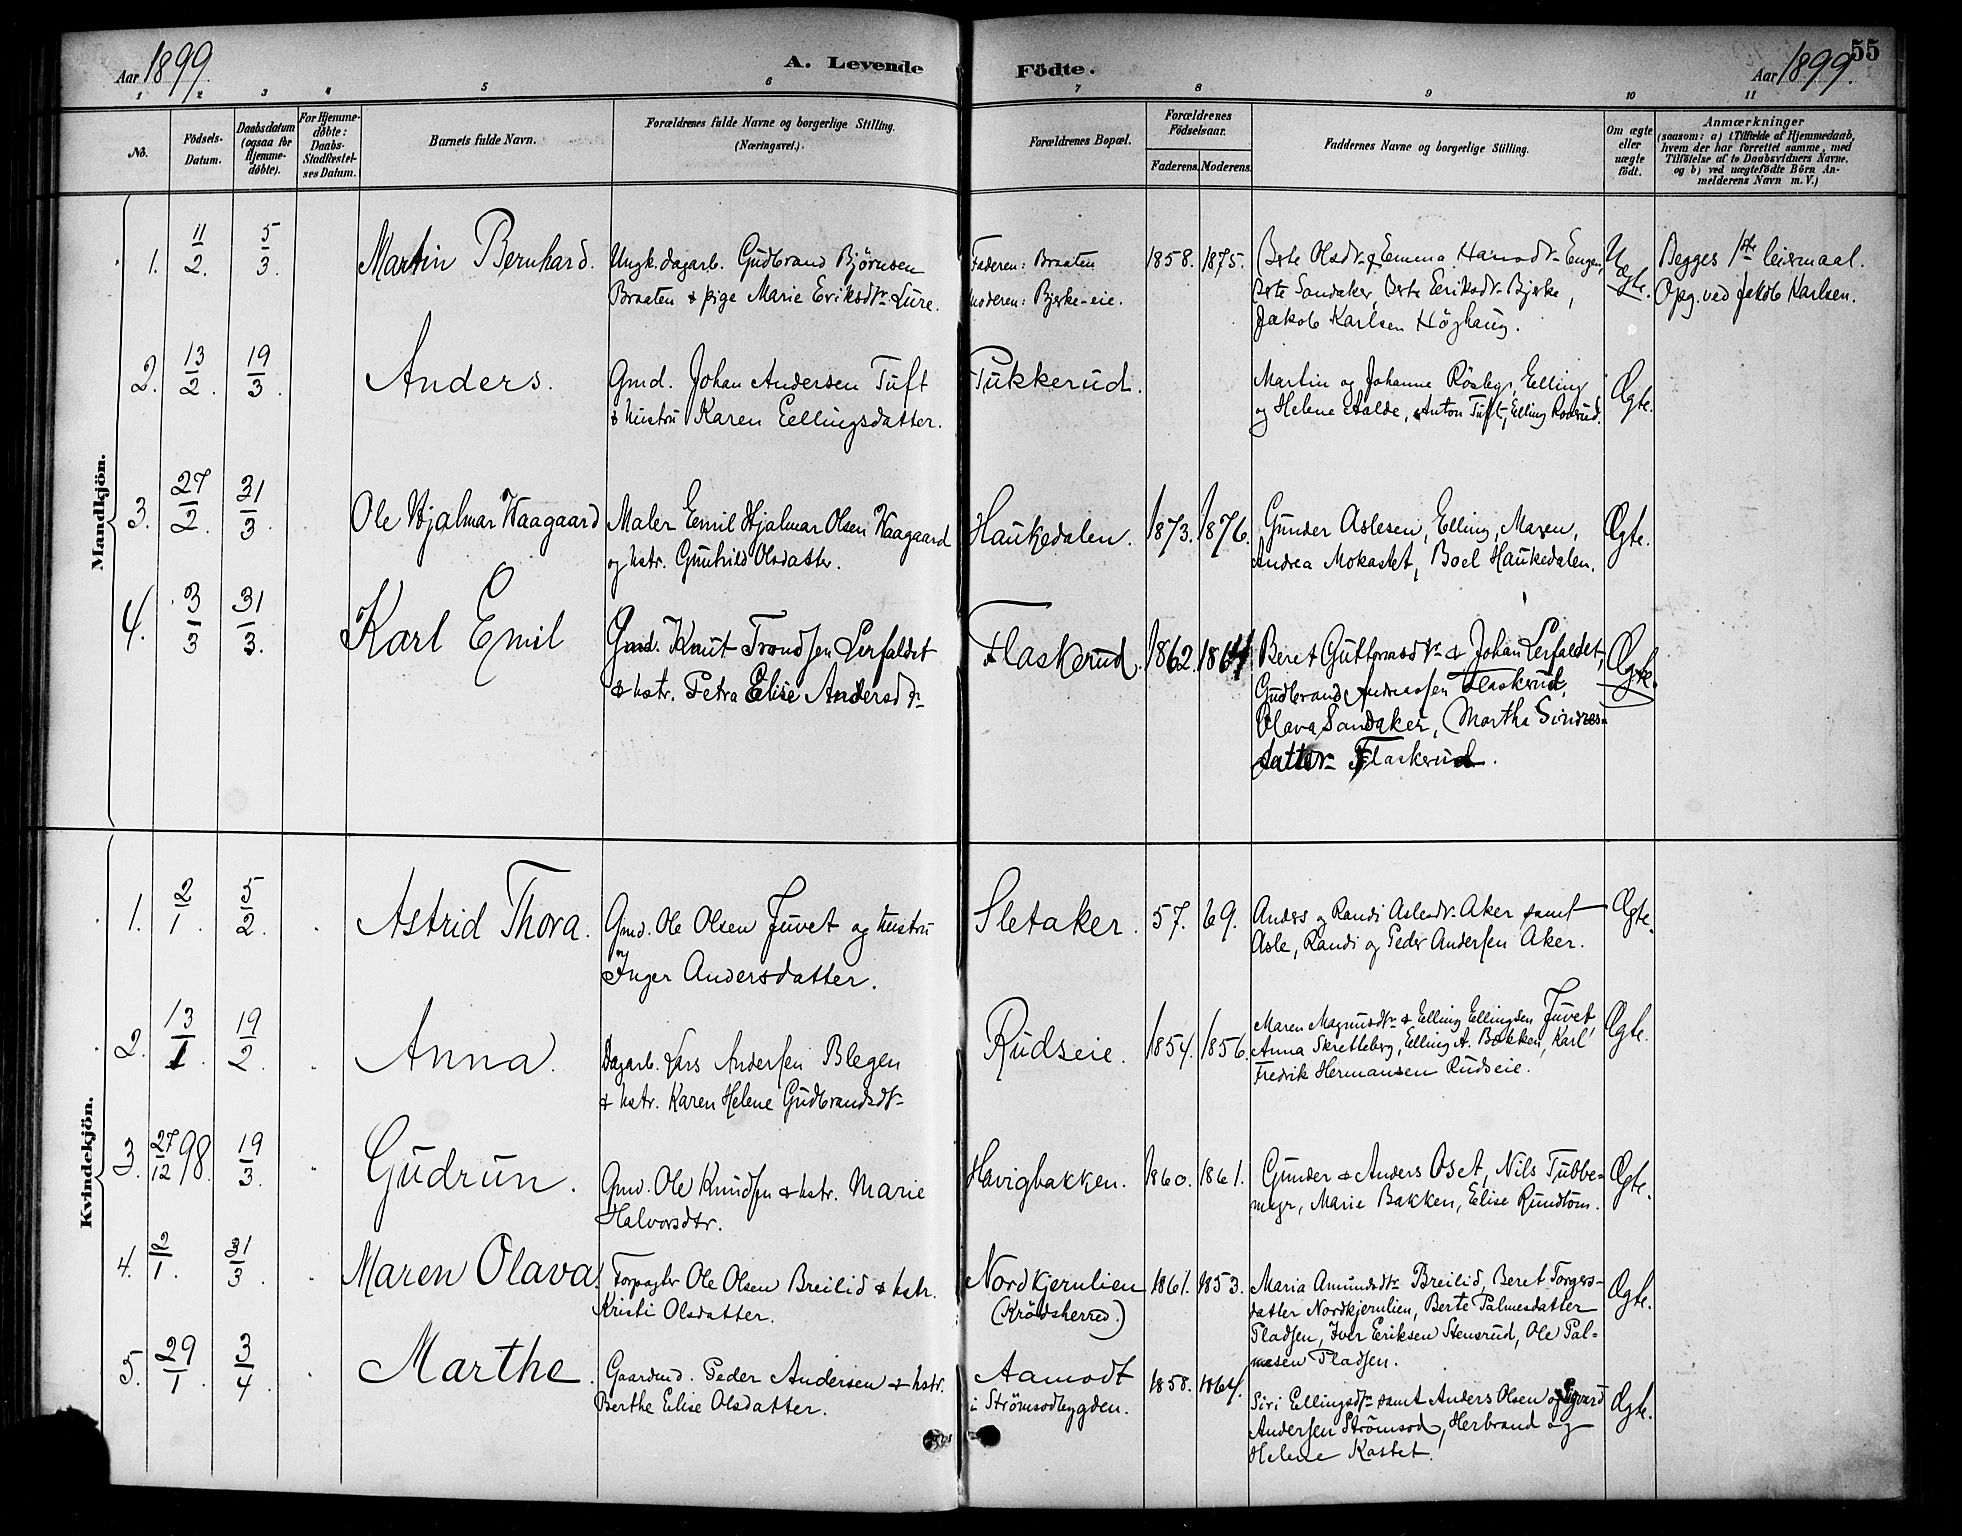 Aar 1899.
A. Levende Födte.
55
Aar 1899.
1 2 3 4 5 6 7 8 9 10 11
No.
Födsels-Datum.
Daabsdatum (ogsaa for Hjemme-døbte).
For Hjemme-døbte: Daabs-Stadfæstel-ses Datum.
Barnets fulde Navn.
Forældrenes fulde Navne og borgerlige Stilling.
(Næringsvei.)
Forældrenes Bopæl.
Forældrenes Födselsaar.
Faderens. Moderens.
Faddernes Navne og borgerlige Stilling.
Om ægte eller uægte født.
Anmærkninger
(saasom: a) i Tilfælde af Hjemmedaab, hvem der har forrettet samme, med Tilföielse af to Daabsvidners Navne, og b) ved uægtefödte Börn An-melderens Navn m. V.)
Mandkjön.
1. 11/2. 5/3. Martin Bernhard.
Ungk. dagarb. Gudbrand Björnsen
Braaten & pige Marie Eriksdtr Lure.
Faderen: Braaten
Moderen: Bjerke-eie.
1858. 1875.
Berte Olsdtr & Emma Hansdtr Engen,
Berte Sandaker, Berte Eriksdtr Bjerke,
Jakob Karlsen Höghaug.
Uægte.
Begges 1ste leiermaal.
Opg. ved Jakob Karlsen.
2. 13/2. 19/3. Anders.
Gmd. Johan Andersen Tuft
& hustru Karen Ellingsdatter.
Tukkerud.
Martin og Johanne Rösbyr, Elling
og Helene Aalde, Anton Tuft, Elling Roserud.
Ægte.
3. 27/2. 31/3. Ole Hjalmar Haagaard
Maler Emil Hjalmar Olsen Haagaard
og hstr. Gunhild Olsdatter.
Haukedalen. 1873. 1876.
Gunder Aslesen, Elling, Maren,
Andrea Mokastet, Boel Haukedalen.
Ægte.
4. 3/3 31/3. Karl Emil
Gmd. Knut Trondsen Lerfaldet
& hstr. Petra Elise Andersdtr
Flaskerud. 1862. 1864
Beret Guttormsdtr & Johan Lerfaldet,
Gudbrand Andreassen Flaskerud,
Olava Sandaker, Martha Simens-
datter Flaskerud.
Ægte.
Kvindekjön.
1. 2/1. 5/2. Astrid Thora.
Gmd. Ole Olsen Juvet og hustru
Inger Andersdatter.
Sletaker. 57. 69.
Anders og Randi Aslesdtr Aker samt
Asle, Randi og Peder Andersen Aker.
Ægte.
2. 13/1. 19/2. Anna.
Dagarb. Lars Andersen Blegen
& hstr. Karen Helene Gudbrandsdtr
Rudseie. 1854. 1856.
Maren Magnusdtr & Elling Ellingsen Juvet,
Anna Skretteberg, Elling A. Bakken, Karl
Fredrik Hermansen Rudseie.
Ægte.
3. 27/12 98. 19/3. Gudrun.
Gmd. Ole Knudsen & hstr. Marie
Halvorsdtr.
Havigbakken. 1860. 1861.
Gunder & Anders Oset, Nils Tubbe-
myr, Marie Bakken, Elise Rundtom.
Ægte.
4. 2/1. 31/3. Maren Olava.
Forpagter Ole Olsen Breilid & hstr.
Kristi Olsdatter.
Nordkjernlien
(Krödsherred.)
1861. 1853.
Maria Amundsdtr Breilid, Beret Torgers-
datter Nordkjernlien, Berte Palmesdatter
Pladsen, Iver Eriksen Stensrud, Ole Pal-
mesen Pladsen.
Ægte.
5. 29/1. 3/4. Marthe.
Gaardmd. Peder Andersen & hstr.
Berthe Elise Olsdatter.
Aamodt
i Strömsodbygden.
1858. 1864.
Siri Ellingsdtr samt Anders Olsen og Sigvard
Andersen Strömsod, Herbrand og
Helene Kastet.
Ægte.